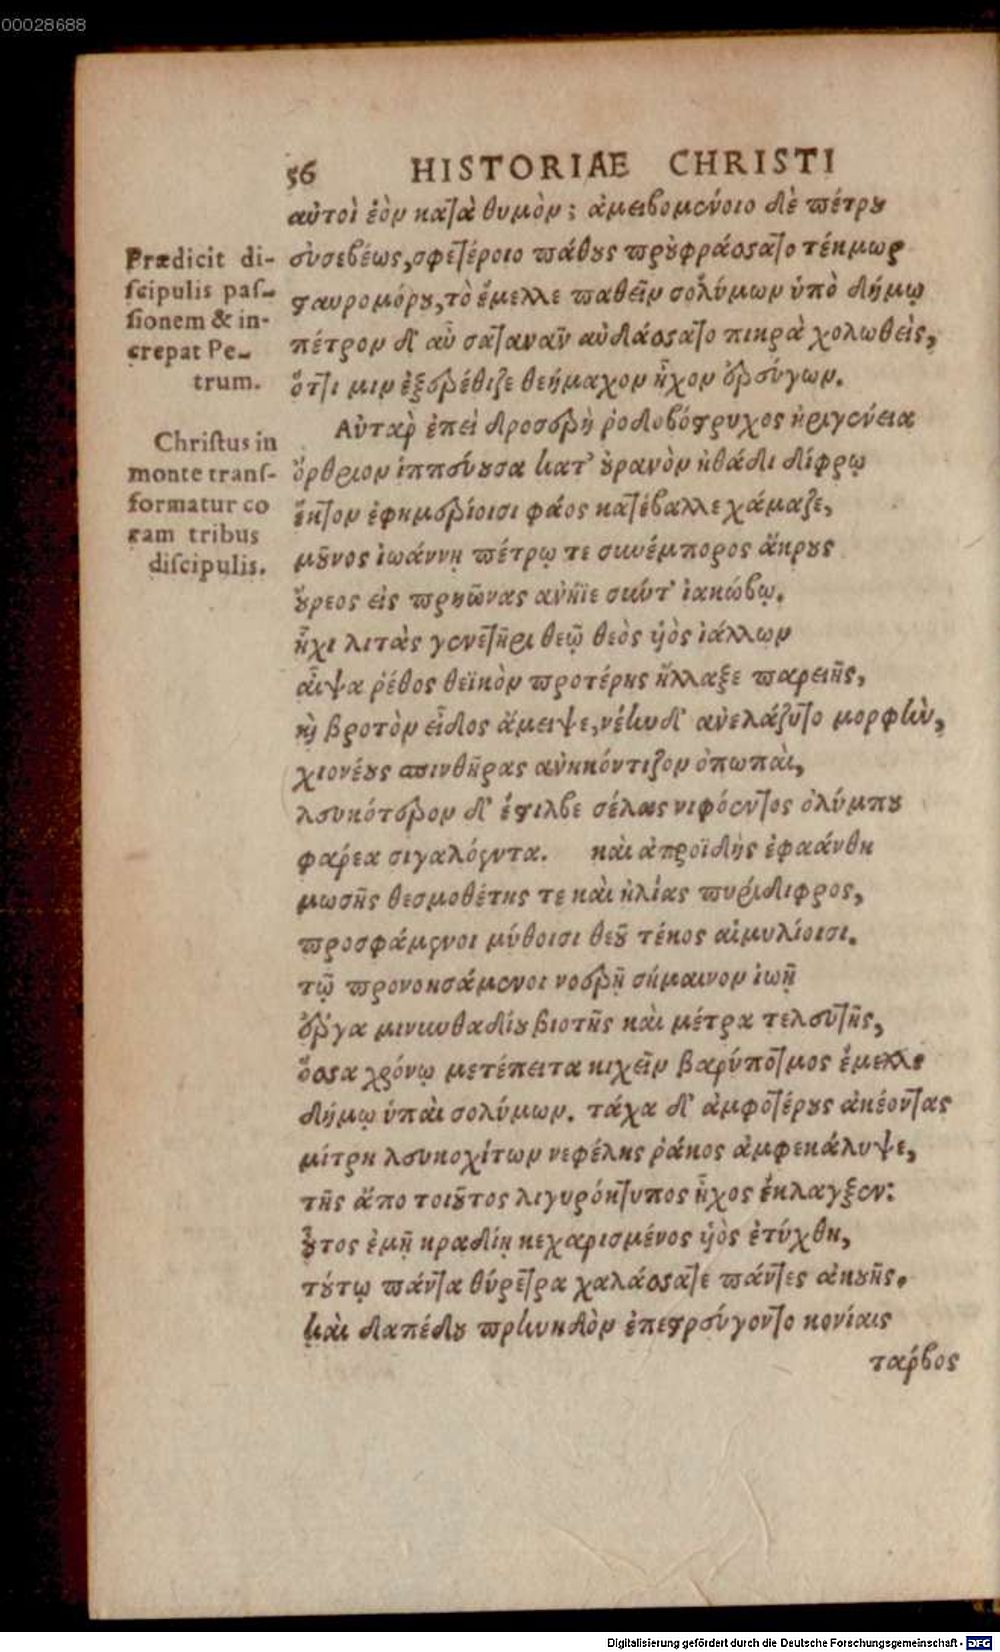 00028688
56 HISTORIAE CHRISTI
αὐτοὶ ἑὸν κατὰ θυμὸν; ἀμειβομένοιο δὲ πέτρου
Prædicit di-
scipulis pas-
sionem & in-
crepat Pe-
trum.
εὐσεβέως, σφετέροιο πάθους προὐφράσσατο τέκμωρ
σταυρομόρου, τὸ ἔμελλε παθεῖν σολύμων ὑπὸ δήμῳ
πέτρον δ' αὖ σαταναῖν αὐδάσσατο πικρὰ χολωθεὶς,
ὅττι μιν ἐξερέθιζε θεήμαχον ἦχον ἐρεύγων.
Αὐτὰρ ἐπεὶ δροσερὴ ῥοδοβόστρυχος ἠριγένεια
Christus in
monte trans-
formatur co
ram tribus
discipulis.
ὄρθριον ἱππεύουσα κατ' οὐρανὸν ἠθάδι δίφρῳ
ἕκτον ἐφημερίοισι φάος κατέβαλλε χάμαζε,
μοῦνος ἰωάννῃ πέτρῳ τε συνέμπορος ἄκρους
οὔρεος εἰς πρηῶνας ἀνήϊε σύντ' ἰακώβῳ.
ἧχι λιτὰς γενετῆρι θεῷ θεὸς υἱὸς ἰάλλων
αἶψα ῥέθος θεϊκὸν προτέρης ἤλλαξε παρειῆς,
καὶ βροτὸν εἶδος ἄμειψε, νέην δ' ἀνελάζυτο μορφὴν,
χιονέους σπινθῆρας ἀνηκόντιζον ὀπωπαὶ,
λευκότερον δ' ἔστιλβε σέλας νιφόεντος ὀλύμπου
φαρέα σιγαλόεντα. καὶ ἀπροϊδὴς ἐφαάνθη
μωσῆς θεσμοθέτης τε καὶ ἠλίας πυρίδιφρος,
προσφάμενοι μύθοισι θεοῦ τέκος αἱμυλίοισι.
τῷ προνοησάμενοι νοερῇ σήμαινον ἰωῇ
ἔργα μινυνθαδίου βιοτῆς καὶ μέτρα τελευτῆς,
ὅσσα χρόνῳ μετέπειτα κιχεῖν βαρύποτμος ἔμελλε
δήμῳ ὑπαὶ σολύμων. τάχα δ' ἀμφοτέρους ἀκέοντας
μίτρη λευκοχίτων νεφέλης ῥάκος ἀμφεκάλυψε,
τῆς ἄπο τοιοῦτος λιγυρόκτυπος ἦχος ἔκλαγξεν:
οὗτος ἐμῇ κραδίῃ κεχαρισμένος υἱὸς ἐτύχθη,
τούτῳ πάντα θύρετρα χαλάσσατε πάντες ἀκουῆς.
καὶ δαπέδου πρηνηδὸν ἐπεστρεύγοντο κονίαις
τάρβος
Digitalisierung gefördert durch die Deutsche Forschungsgemeinschaft - DFG